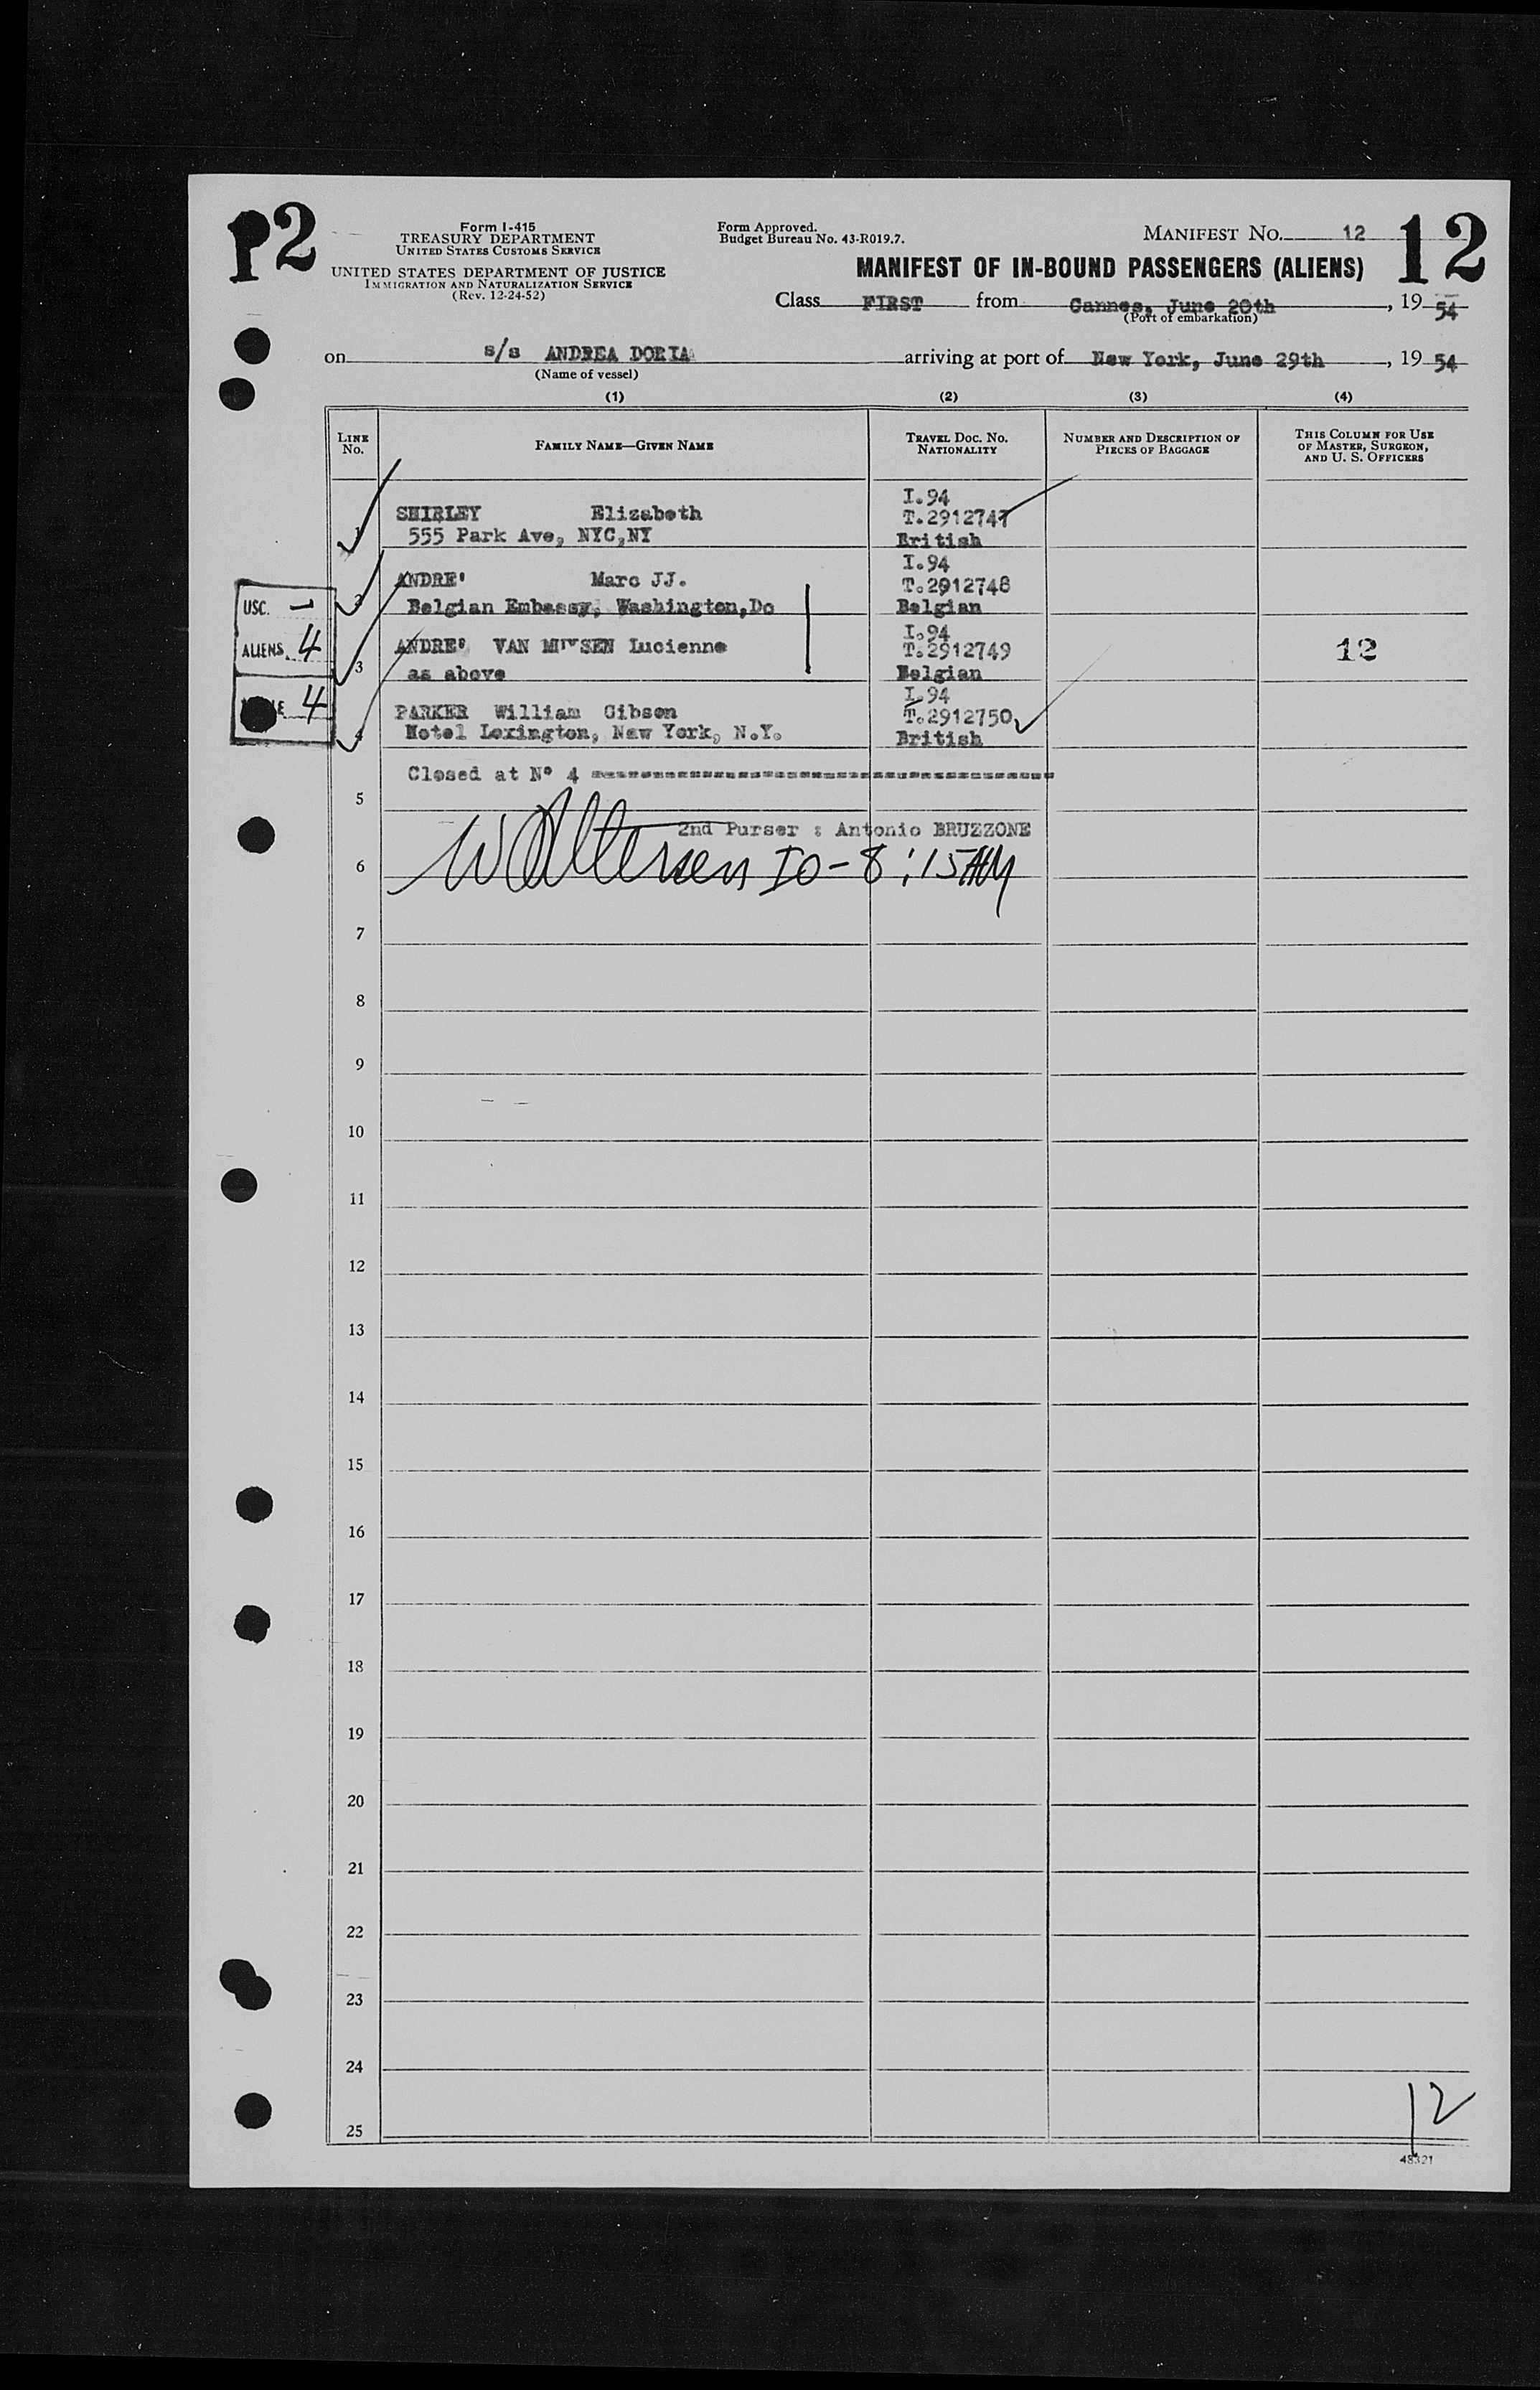 P2
Form I-415
TREASURY DEPARTMENT
UNITED STATES CUSTOMS SERVICE
UNITED STATES DEPARTMENT OF JUSTICE
IMMIGRATION AND NATURALIZATION SERVICE
(Rev. 12-24-52)
Form Approved.
Budget Bureau No. 43-R019.7.
MANIFEST NO. 12
12
MANIFEST OF IN-BOUND PASSENGERS (ALIENS)
Class FIRST from Cannes, June 20th, 1954
(Port of embarkation)
on s/s ANDREA DORIA arriving at port of New York, June 29th, 1954
(Name of vessel)
(1) (2) (3) (4)
LINE No.
FAMILY NAME—GIVEN NAME
TRAVEL DOC. NO. NATIONALITY
NUMBER AND DESCRIPTION OF PIECES OF BAGGAGE
THIS COLUMN FOR USE OF MASTER, SURGEON, AND U. S. OFFICERS
I.94
1 SHIRLEY Elizabeth T.2912747
555 Park Ave, NYC,NY British
I.94
2 ANDRE' Marc JJ. T.2912748
Belgian Embassy, Washington,Dc Belgian
I.94
3 ANDRE' VAN Lucienne T.2912749 12
as above Belgian
I.94
4 PARKER William Gibson T.2912750
Hotel Lexington, New York, N.Y. British
USC. —
ALIENS 4
4
Closed at N° 4
5
2nd Purser : Antonio BRUZZONE
6 IO - 8:15AM
7
8
9
10
11
12
13
14
15
16
17
18
19
20
21
22
23
24
25
12
48321